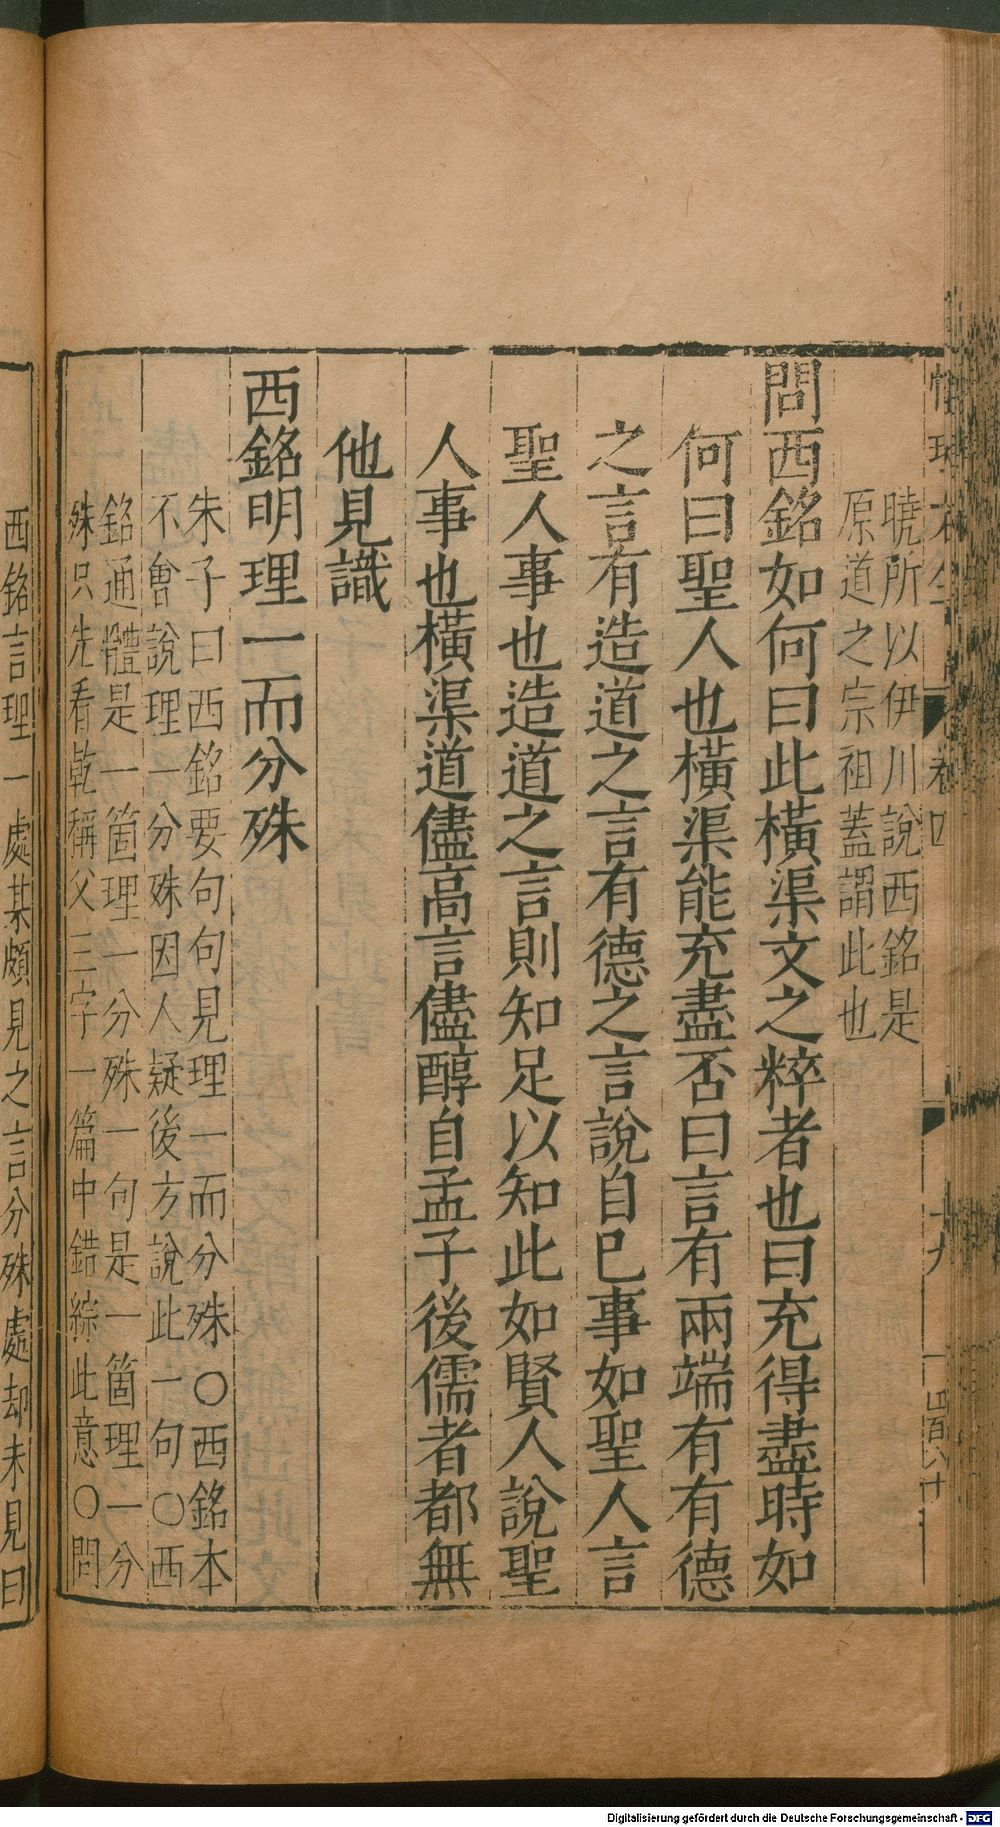 曉所以伊川說西銘是
原道之宗祖蓋謂此也
問西銘如何曰此橫渠文之粹者也曰充得盡時如
何曰聖人也橫渠能充盡否曰言有兩端有有德
之言有造道之言有德之言說自已事如聖人言
聖人事也造道之言則知足以知此如賢人說聖
人事也橫渠道儘高言儘醇自孟子後儒者都無
他見識
西銘明理一而分殊
朱子曰西銘要句句見理一而分殊○西銘本
不會說理一分殊因人疑後方說此一句○西
銘通體是一箇理一分殊一句是一箇理一分
殊只先看乾稱父三字一篇中錯綜此意○問
西銘言理一處某頗見之言分殊處却未見曰
卷四
十九
四百六十
Digitalisierung gefördert durch die Deutsche Forschungsgemeinschaft - DFG